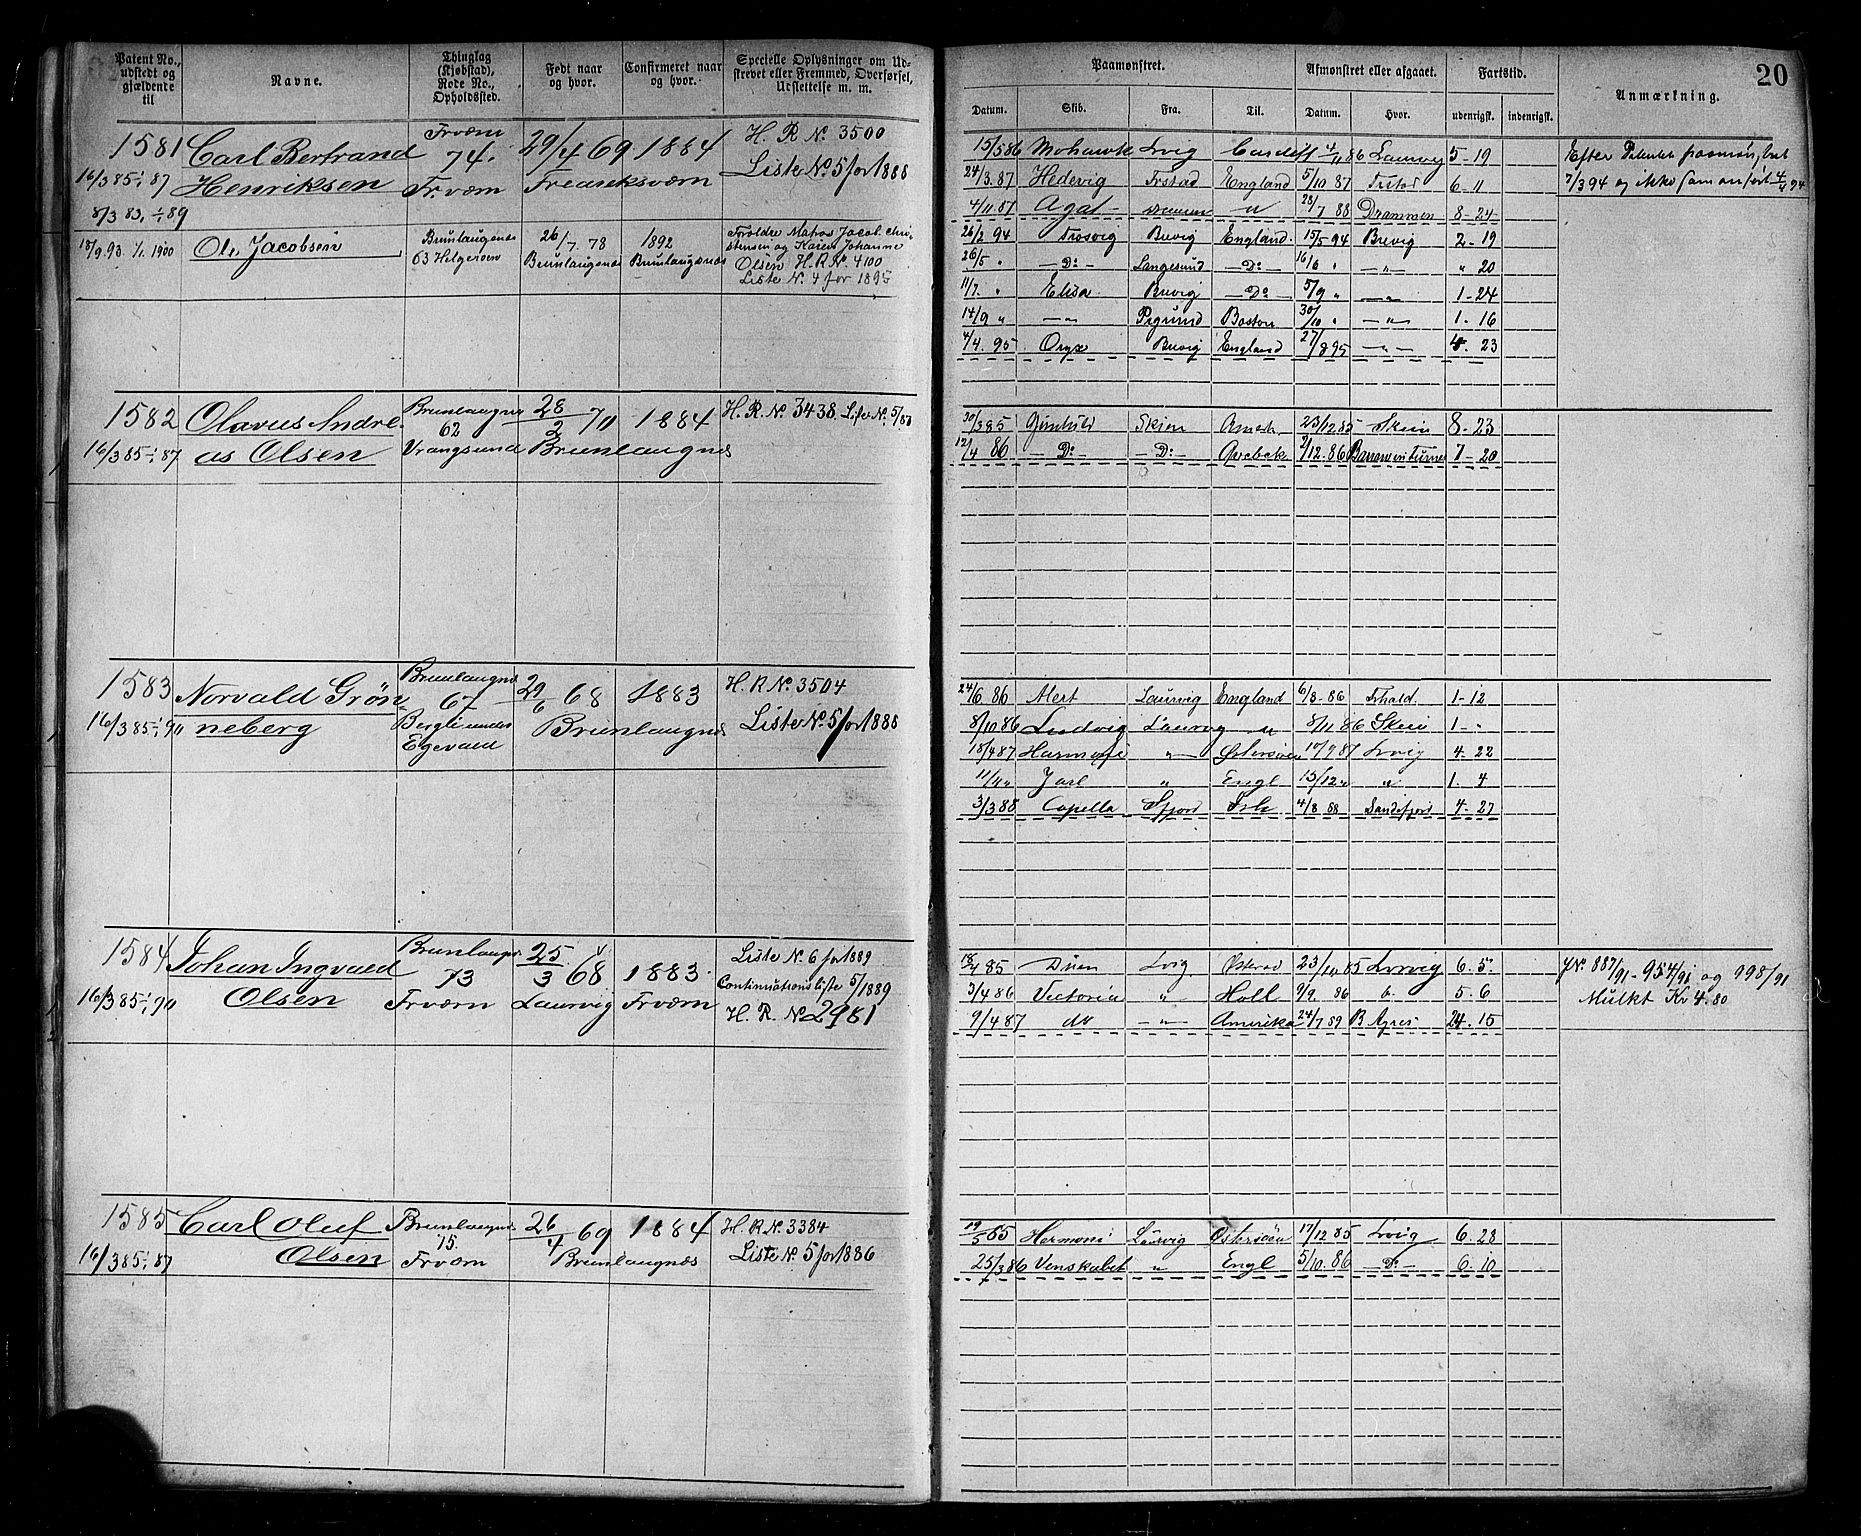 Patent No., udstedt og gjældende til
Navne.
Thinglag (Kjøbstad), Rode No., Opholdssted.
Født naar og hvor.
Confirmeret naar og hvor.
Specielle Oplysninger om Udskrevet eller Fremmed, Overførsel, Udslettelse m. m.
Paamønstret.
Afmønstret eller afgaaet.
Fartstid.
Anmærkning.
20
Datum.
Skib.
Fra.
Til.
Datum.
Hvor.
udenrigsk.
indenrigsk.
1581 Carl Bertrand Frværn 74. 29/4 69 1884 H. R No. 3500
16/3 85 1/1 87 Henriksen Frværn Fredriksværn Liste No. 5 for 1888
8/3 83. 1/1 89
18/9.93 1/1. 1900 Ole Jacobsen Brunlaugenæs 26/7. 78 1892
63 Helgeroen Brunlaugenæs Brunlaugenæs
Forældre Matros Jacob Chri
stensen og Karen Johanne
Olsen H. R. No. 4100
Liste No. 4 for 1895
15/5 86 Mohawk Lvig Cardiff 4/11 86 Laurvig 5-19 Efter
24/3. 87 Hedevig Frstad England 5/10 87 Frstad 6-11 7/3 94 og ikke
4/11 87 Agat Drammen " 28/7 88 Drammen 8-24
26/2 94 Frosvig Brevig England. 15/5 94 Brevig 2-19
26/5 " — Do — Langesund — Do — 16/6 " — " — " 20
11/7. " Elisa Brevig — Do 5/9 " — " — 1-24
14/9 " — " — Prgrund Boston 30/10 " — " — 1. 16
4/4. 95 Onyx Brevig England 27/8 95 — " — 4. 23
1582 Olavus Andre Brunlaugnæs 28/2 70 1884 H. R. No. 3438 Liste No. 5/87
62
16/3 85 1/1 87 as Olsen Vrangsund Brunlaugnæs
30/3 85 Gunhild Skien 23/12 85 Skien 8-23
12/4 86 — Do — — Do — 2/12. 86 7-20
1583 Norvald Grøn Brunlaugnæs 67 29/6 68 1883 H. R No. 3504
16/3 85 1/1 90 neberg Brunlaugnæs Liste No. 5 for 1888
Egevald
24/6 86 Alert Laurvig England 6/8. 86 Frhald. 1-12
8/10 86 Ludvig Laurvig " 8/11 86 Skien 1. "
18/4 87 Harmonie " Østersøen 17/9 87 Lvig 4. 22
11/11 " Jarl " Engl 15/12 " " 1. 4
3/3 88 Capella Sfjord 4/8 88 Sandefjord 4-27
1584 Johan Ingvald Brunlaugn. 25/3 68 1883. Liste No. 6 for 1889
73 Continuations liste 5/1889
16/3 85 1/1 90 Olsen Frværn Laurvig Frværn H. R. No 2981
18/4 85 Duen Lvig 23/10 85 Lrvig 6. 5. J.No. 887/91 - 954/91 og 998/91
3/4 86 Victoria " Holl 9/9 86 5. 6 Mulkt Kr 4.80
9/4 87 do — " — Amerika 24/7 89 B Ayres 24. 15
1585 Carl Oluf Brunlaugnæs 26/4 69 1884 H. R No. 3384
75.
16/3 85 1/1 87 Olsen Frværn Brunlaugnæs Liste No. 5 for 1886
19/5 85 Harmoni Laurvig Østersøen 17/12 85 Lvig 6. 28
25/3 86 Venskabet " Engl 5/10. 86 — Do — 6. 10